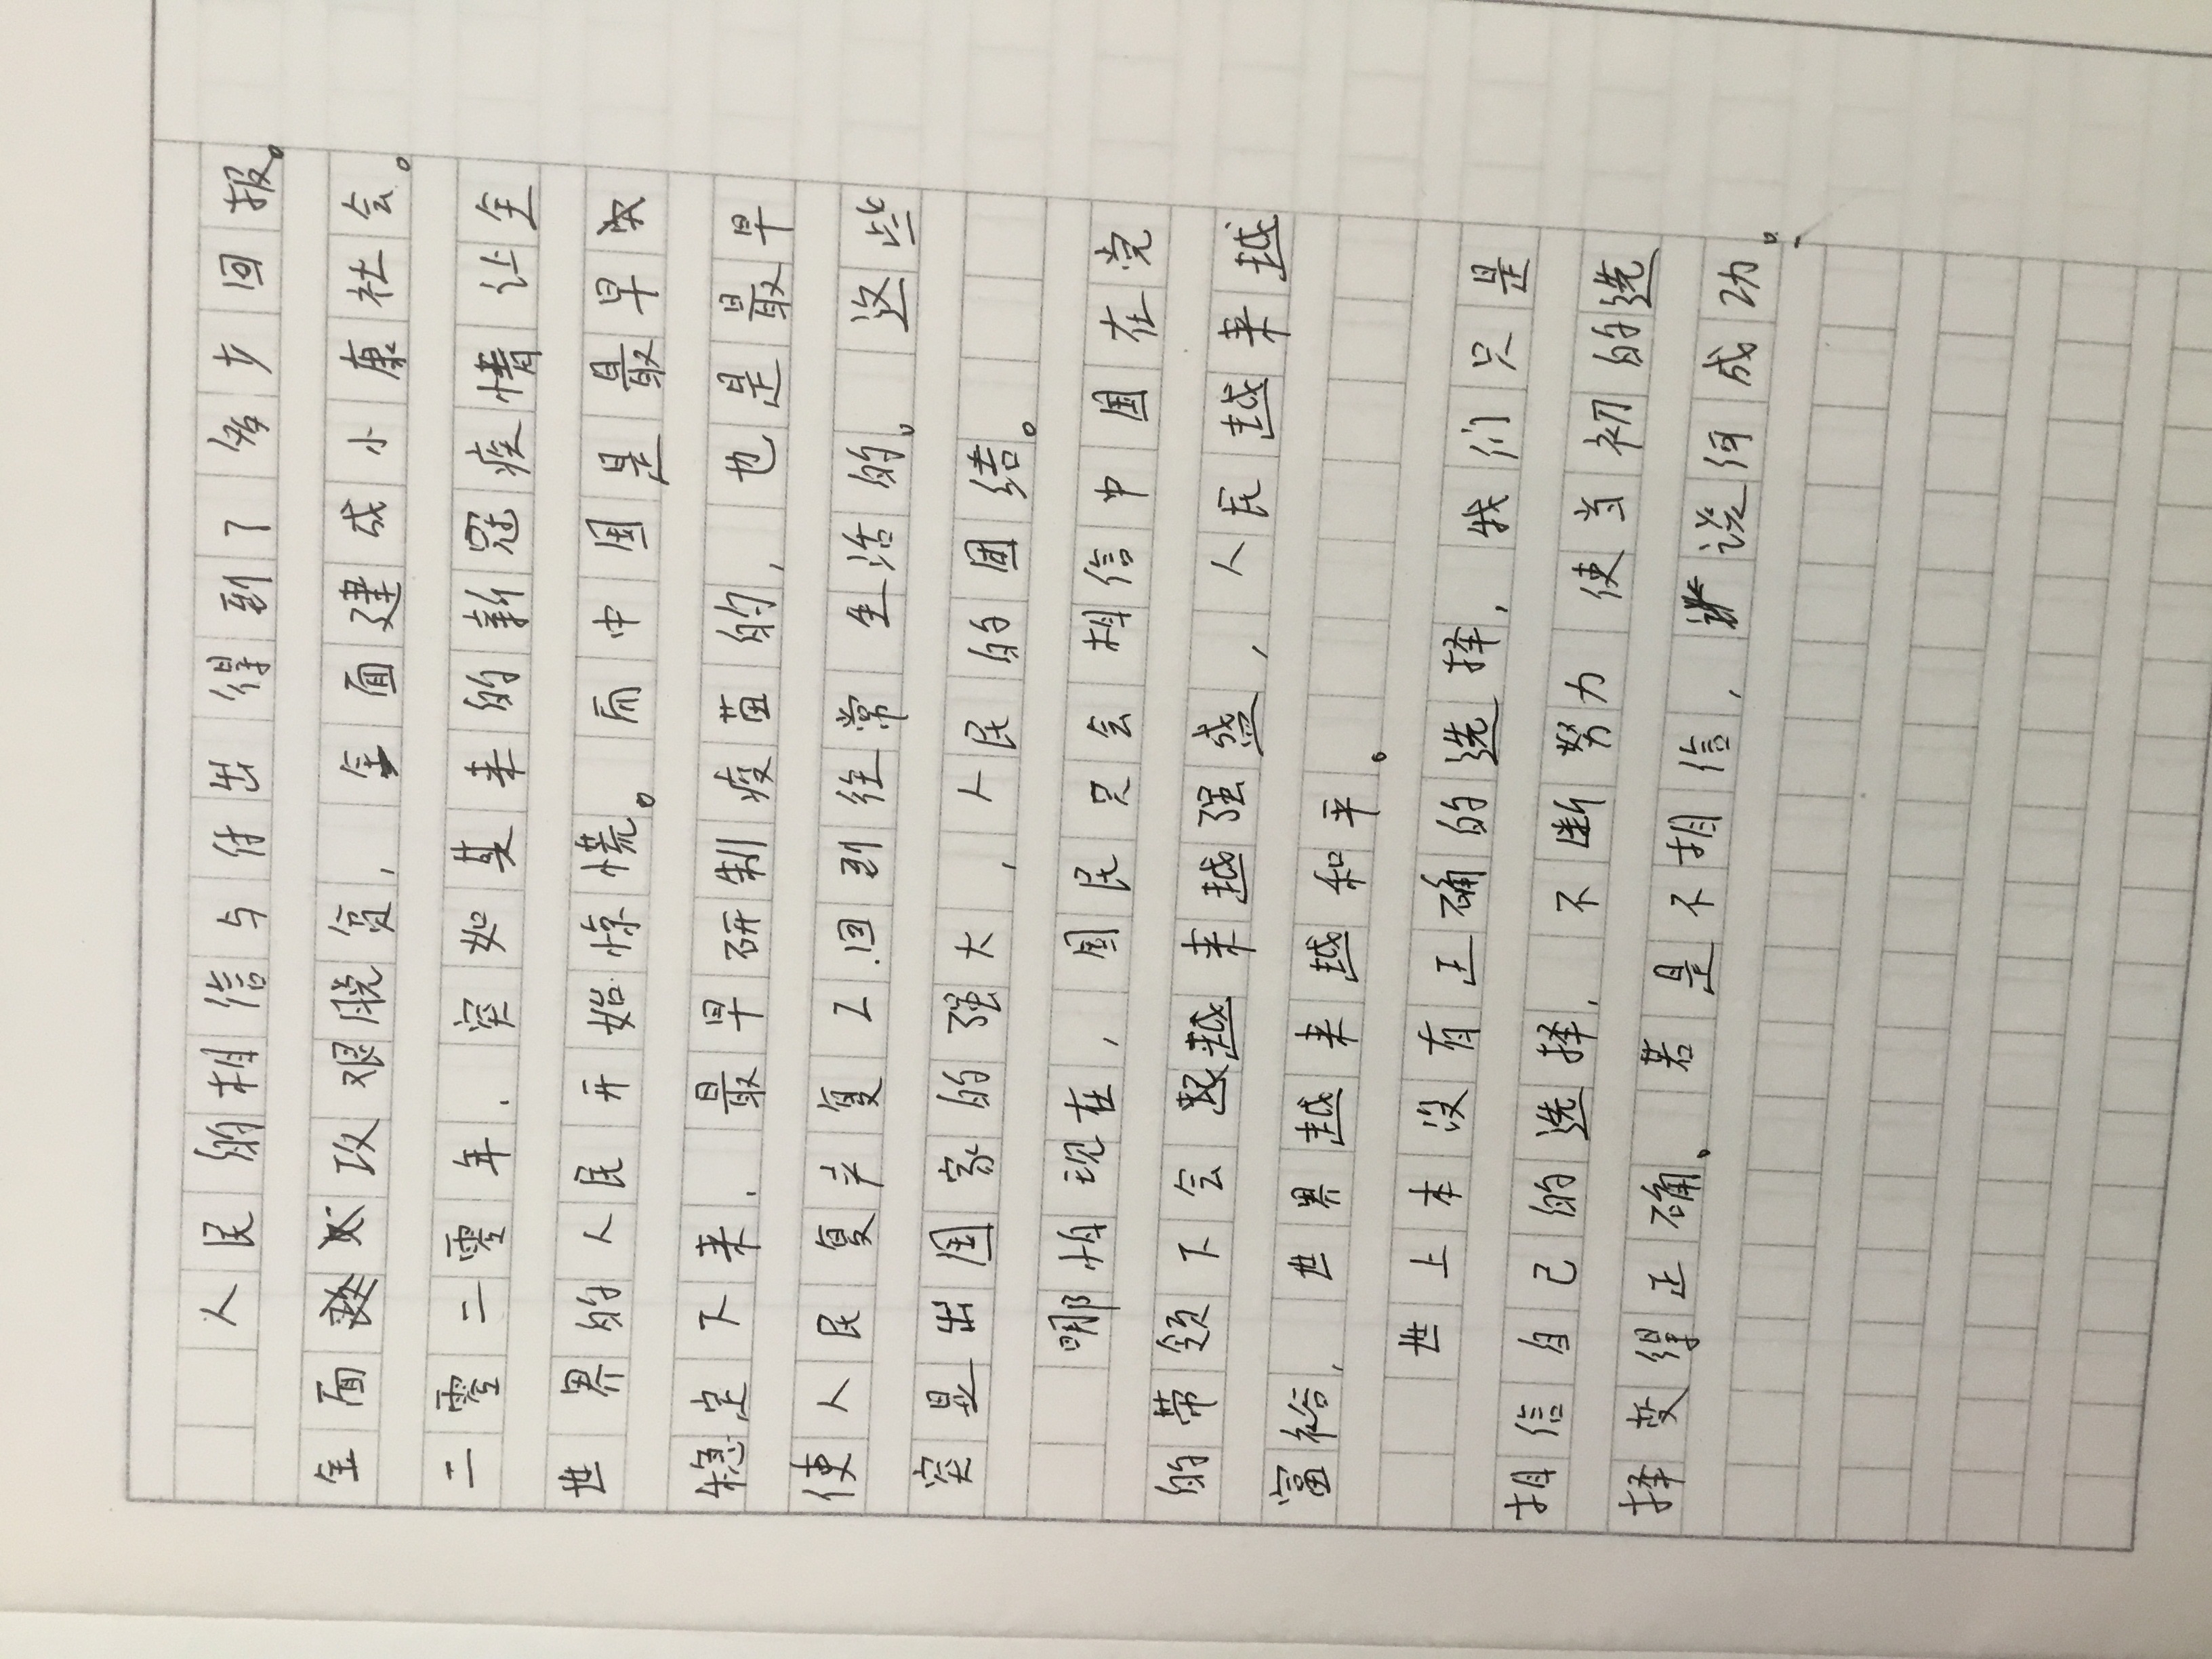 人民的相信与付出得到了多少回报。
全面攻艰脱贫，全面建成小康社会。
二零二零年，突如其来的新冠疫情让全
世界的人民开始惊慌。而中国是最早
稳定下来，最早研制疫苗的，也是最早
使人民复产复工回到往常生活的。这些
突显出国家的强大，人民的团结。
哪怕现在，国民只会相信中国在党
的带领下会越来越强盛，人民越来越
富裕，世界越来越和平。
世上本没有正确的选择，我们只是
相信自己的选择，不断努力使当初的选
择变得正确。若是不相信，谈何成功。